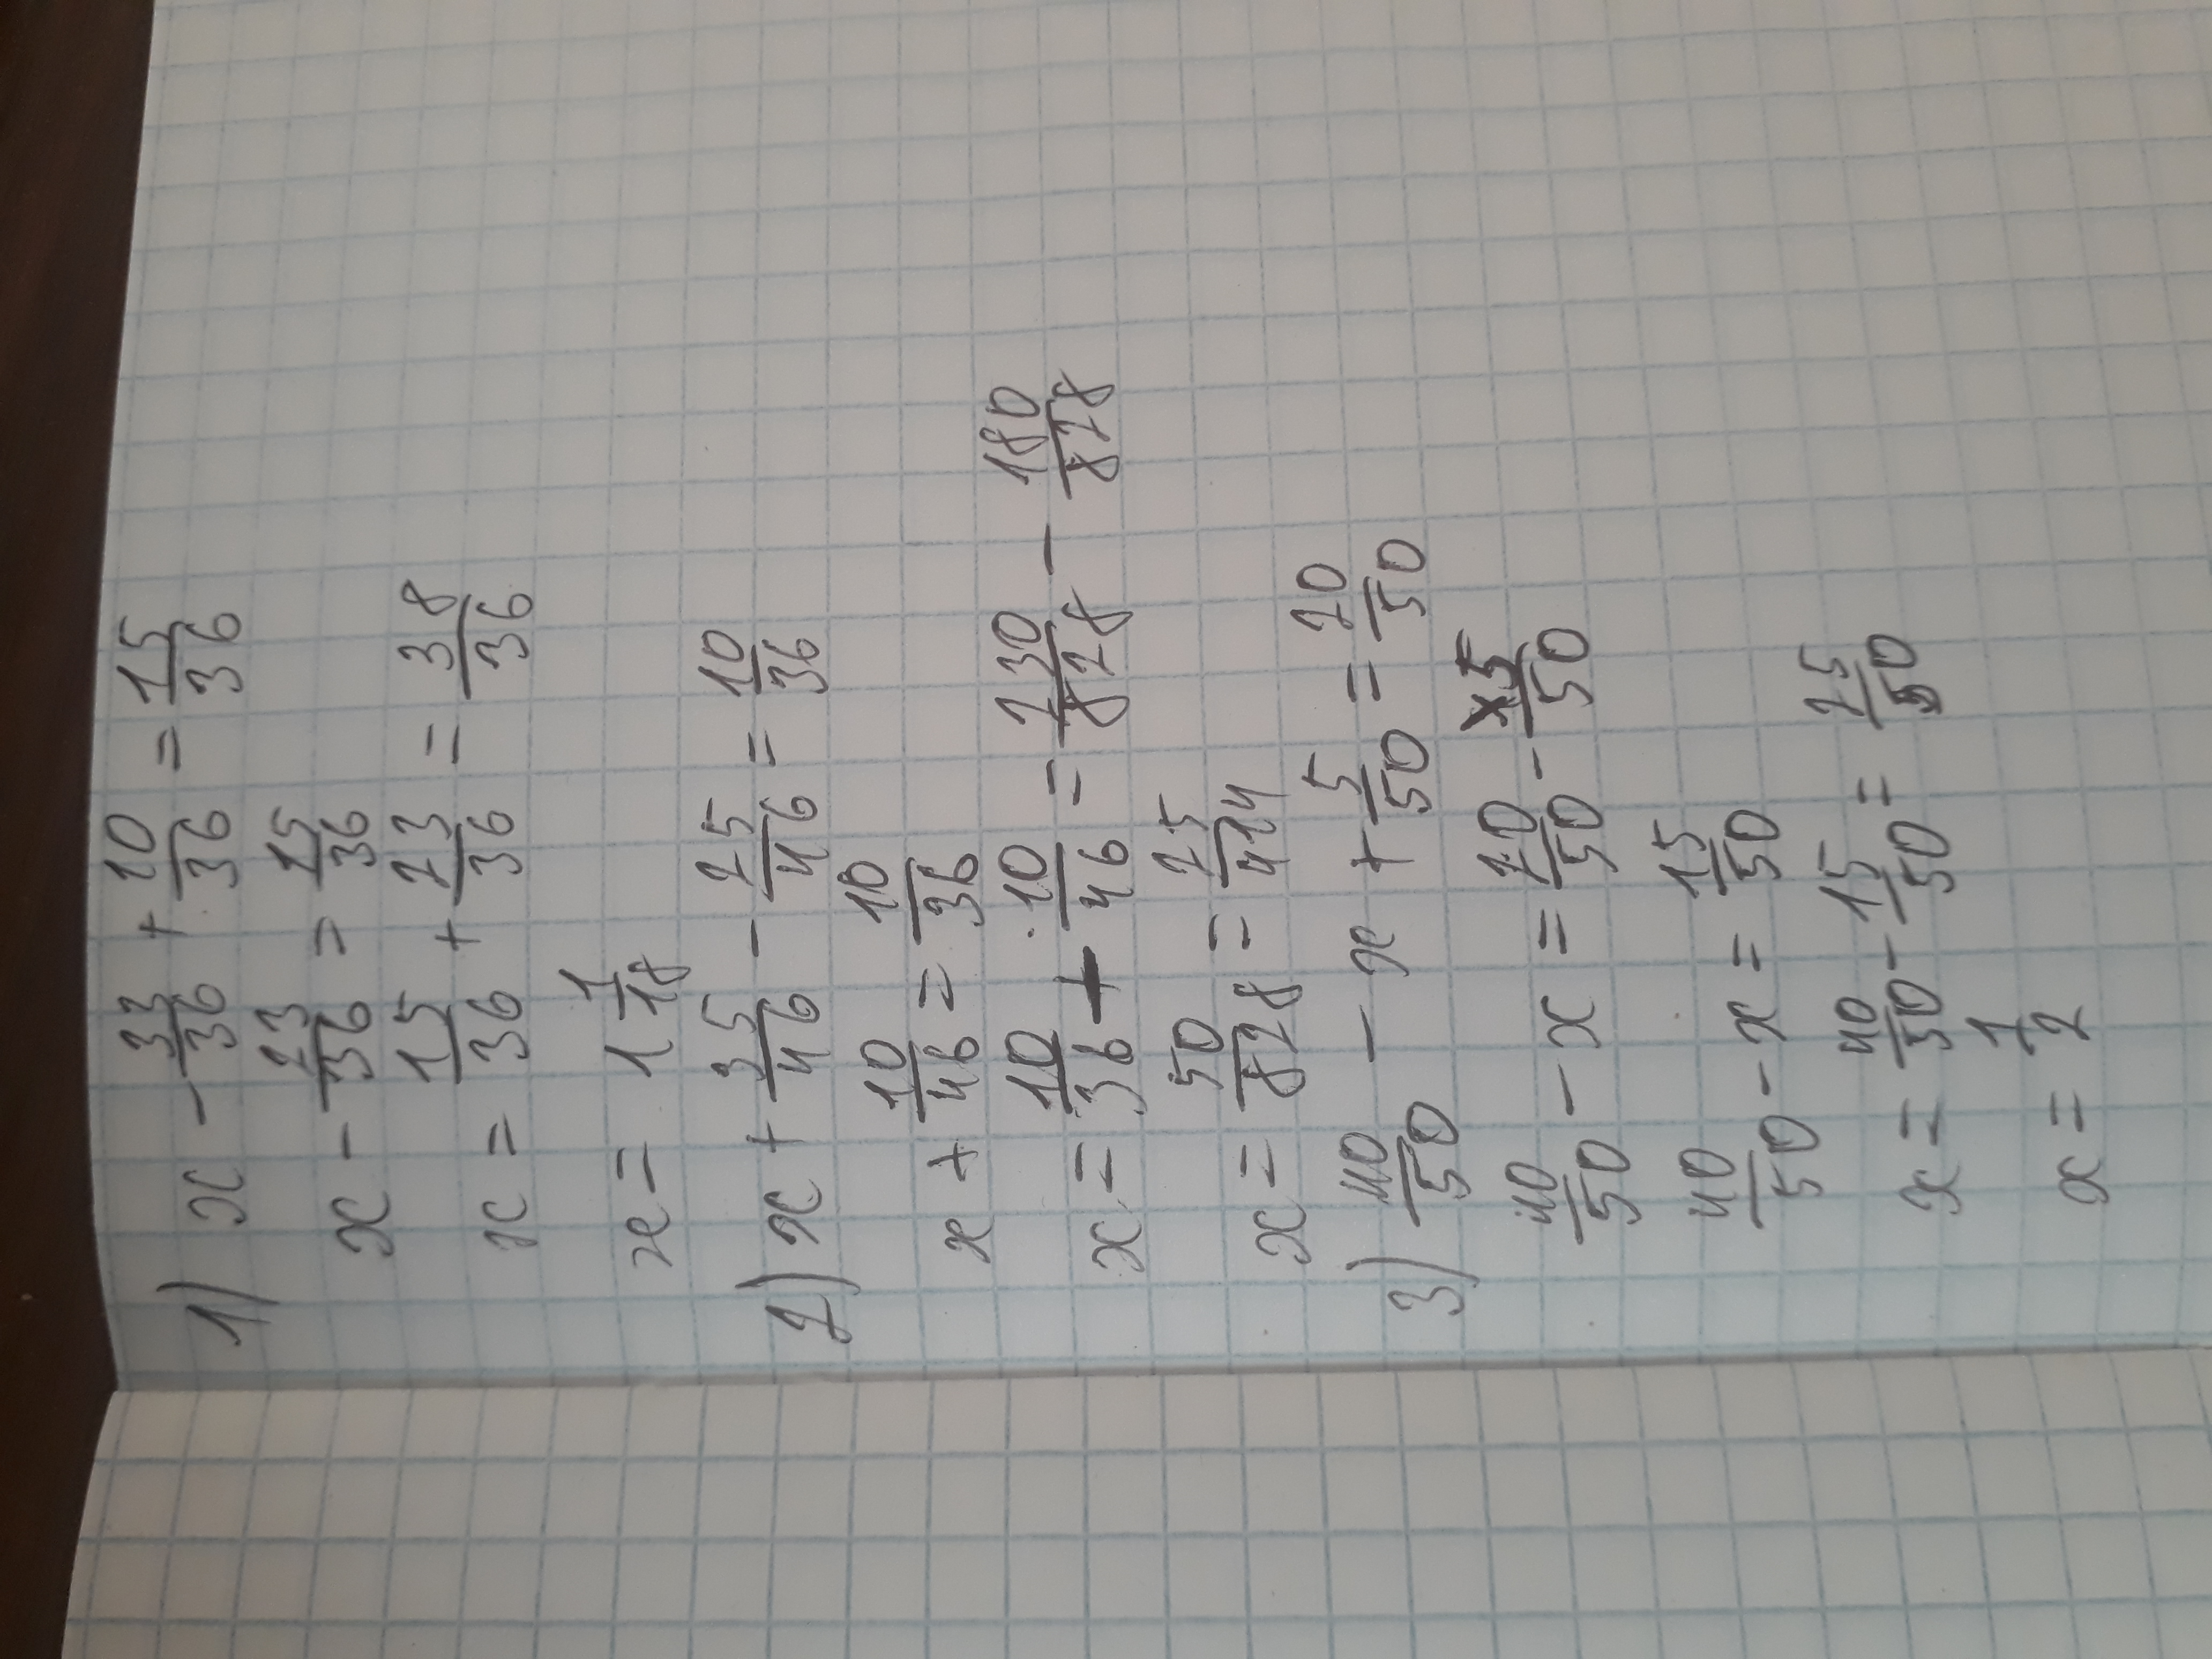 1) x - 33/36 + 10/36 = 15/36
x - 23/36 = 15/36
x = 15/36 + 23/36 = 38/36
x = 1 1/18
2) x + 35/46 - 25/46 = 10/36
x + 10/46 = 10/36
x = 10/36 + 10/46 = 230/828 - 180/828
x = 50/828 = 25/414
3) 40/50 - x + 5/50 = 20/50
40/50 - x = 20/50 - 5/50
40/50 - x = 15/50
x = 40/50 - 15/50 = 25/50
x = 1/2